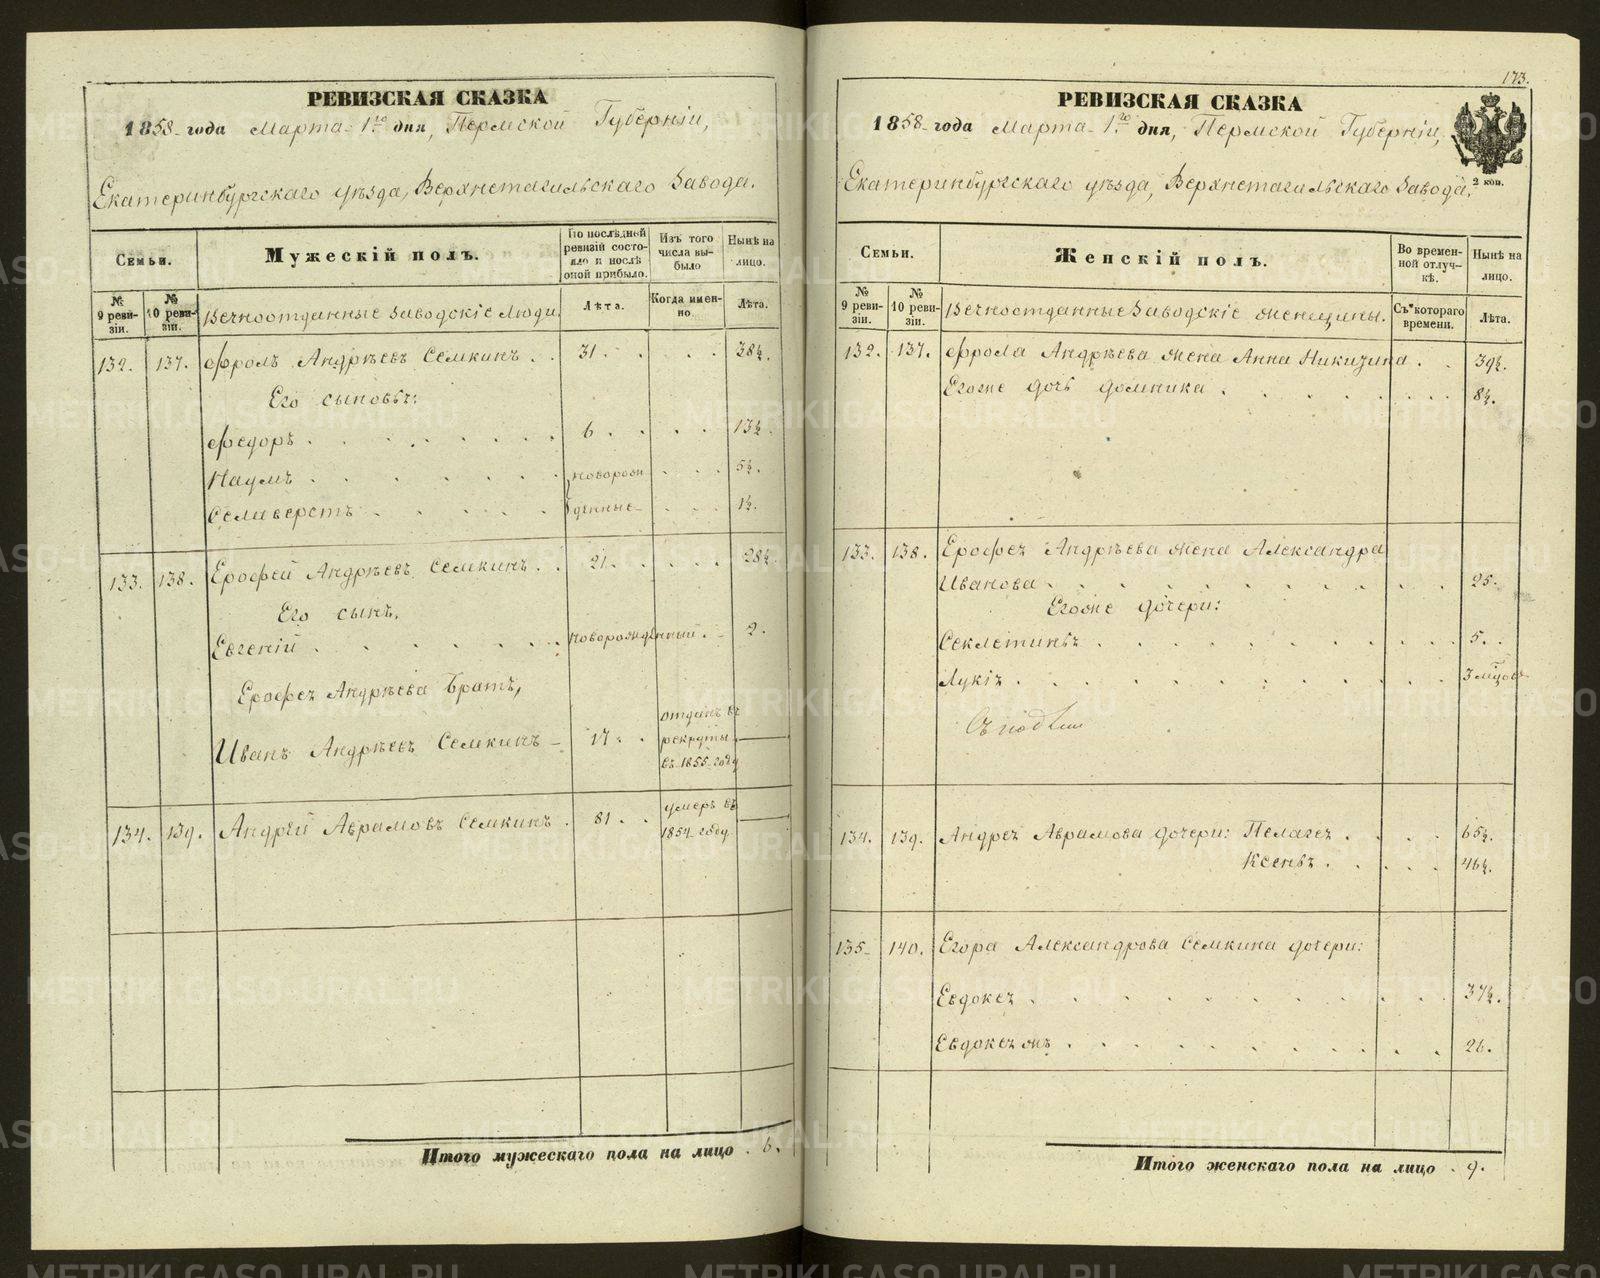 РЕВИЗСКАЯ СКАЗКА
1858 года Марта 1го дня, Пермской Губерніи,
Екатеринбургскаго уѣзда, Верхнетагильскаго Завода.
Семьи.
Мужескій полъ.
По послѣдней ревизіи состояло и послѣ оной прибыло.
Изъ того числа выбыло
Нынѣ на лицо.
№ 9 ревизіи.
№ 10 ревизіи.
Вечноотданные Заводскіе Люди.
Лѣта.
Когда именно.
Лѣта.
132. 137. Фролъ Андрѣевъ Семкинъ . . 31 . . . . 38½.
Его сыновья:
Федоръ 6 . . . . 13½.
Наумъ новорож 5½.
Селиверстъ денные 1½.
133. 138. Ерофей Андрѣевъ Семкинъ . . 21 . . . . 28½.
Его сынъ,
Евгеній новорожденный . 2.
Ерофея Андрѣева Братъ,
Иванъ Андрѣевъ Семкинъ 14 . . отданъ въ рекруты въ 1855 году
134. 139. Андрей Аврамовъ Семкинъ . 81 . . умеръ въ 1854 году
Итого мужескаго пола на лицо . 6.
173.
РЕВИЗСКАЯ СКАЗКА
1858 года Марта 1го дня, Пермской Губерніи,
Екатеринбургскаго уѣзда, Верхнетагильскаго Завода.
2 коп.
Семьи.
Женскій полъ.
Во временной отлучкѣ.
Нынѣ на лицо.
№ 9 ревизіи.
№ 10 ревизіи.
Вечноотданные Заводскіе женщины.
Съ котораго времени.
Лѣта.
132. 137. Фрола Андрѣева жена Анна Никизина . . 39½.
Егоже дочь Домника 8½.
133. 138. Ерофея Андрѣева жена Александра
Иванова 25.
Егоже дочери:
Секлетинья 5.
Лукія 3 мѣсов
134. 139. Андрея Аврамова дочери: Пелагея 65½.
Ксенья 46½.
135. 140. Егора Александрова Семкина дочери:
Евдокея 37½.
Евдокея жъ 26.
Итого женскаго пола на лицо . 9.
METRIKI.GASO-URAL.RU